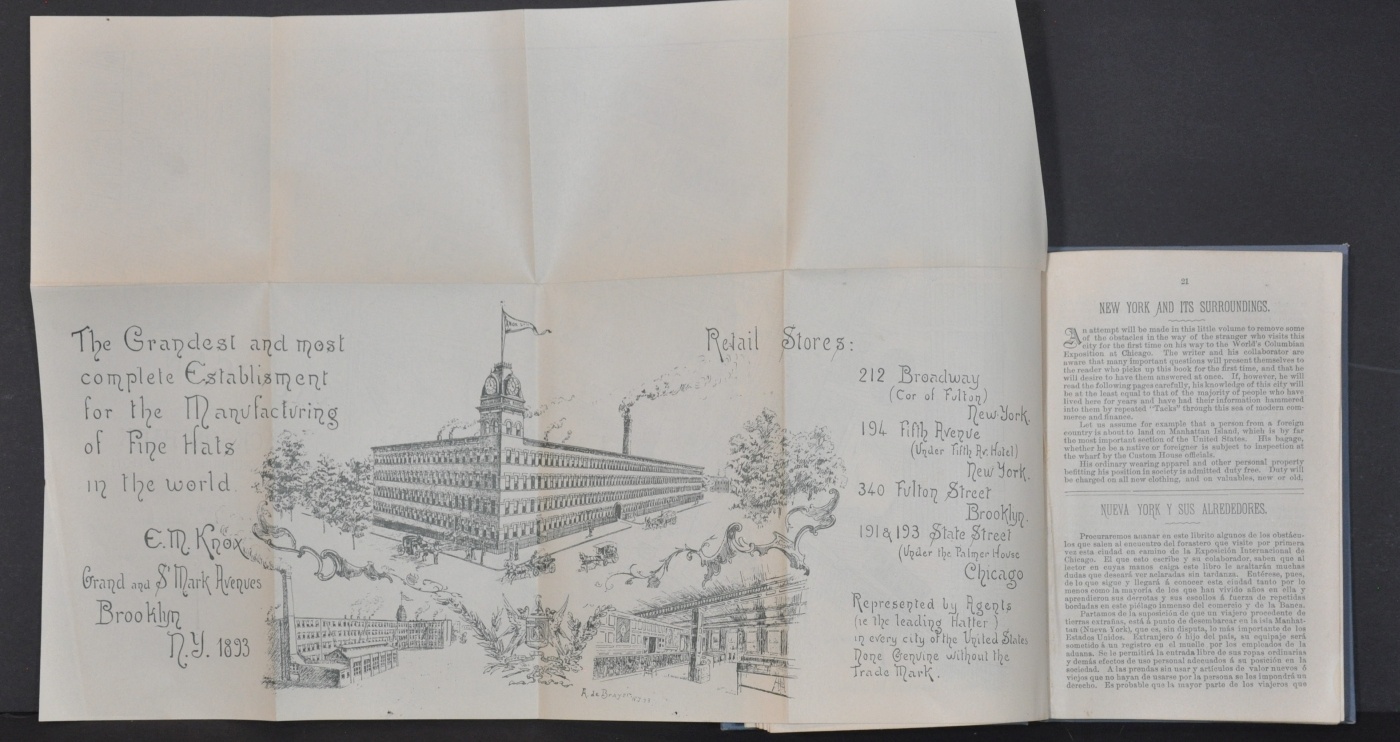 The Grandest and most
complete Establisment
for the Manufacturing
of Fine Hats
in the world
E.M. Knox
Grand and St Mark Avenues
Brooklyn
N.Y. 1893
Retail Stores:
212 Broadway
(Cor of Fulton)
New-York.
194 Fifth Avenue
(Under Fifth Av. Hotel)
New York.
340 Fulton Street
Brooklyn.
191 & 193 State Street
(Under the Palmer House
Chicago
Represented by Agents
(ie the leading Hatter)
in every city of the United States
None Genuine without the
Trade Mark.
21
NEW YORK AND ITS SURROUNDINGS.
An attempt will be made in this little volume to remove some
of the obstacles in the way of the stranger who visits this
city for the first time on his way to the World's Columbian
Exposition at Chicago. The writer and his collaborator are
aware that many important questions will present themselves to
the reader who picks up this book for the first time, and that he
will desire to have them answered at once. If, however, he will
read the following pages carefully, his knowledge of this city will
be at the least equal to that of the majority of people who have
lived here for years and have had their information hammered
into them by repeated "Tacks" through this sea of modern com-
merce and finance.
Let us assume for example that a person from a foreign
country is about to land on Manhattan Island, which is by far
the most important section of the United States. His bagage,
whether he be a native or foreigner is subject to inspection at
the wharf by the Custom House officials.
His ordinary wearing apparel and other personal property
befitting his position in society is admitted duty free. Duty will
be charged on all new clothing, and on valuables, new or old,
NUEVA YORK Y SUS ALREDEDORES.
Procuraremos aunar en este librito algunos de los obstácu-
los que salen al encuentro del forastero que visite por primera
vez esta ciudad en camino de la Exposición Internacional de
Chicago. El que esto escribe y su colaborador, saben que al
lector en cuyas manos caiga este libro le asaltarán muchas
dudas que deseará ver aclaradas sin tardanza. Entérese, pues,
de lo que sigue y llegará á conocer esta ciudad tanto por lo
menos como la mayoría de los que han vivido años en ella y
aprendieron sus derrotas y sus escollos á fuerza de repetidas
bordadas en este piélago inmenso del comercio y de la Banca.
Partamos de la suposición de que un viajero procedente de
tierras extrañas, está á punto de desembarcar en la isla Manhat-
tan (Nueva York), que es, sin disputa, lo más importante de los
Estados Unidos. Extranjero ó hijo del país, su equipaje será
sometido á un registro en el muelle por los empleados de la
aduana. Se le permitirá la entrada libre de sus ropas ordinarias
y demás efectos de uso personal adecuados á su posición en la
sociedad. A las prendas sin usar y artículos de valor nuevos ó
viejos que no hayan de usarse por la persona se les impondrá un
derecho. Es probable que la mayor parte de los viajeros que